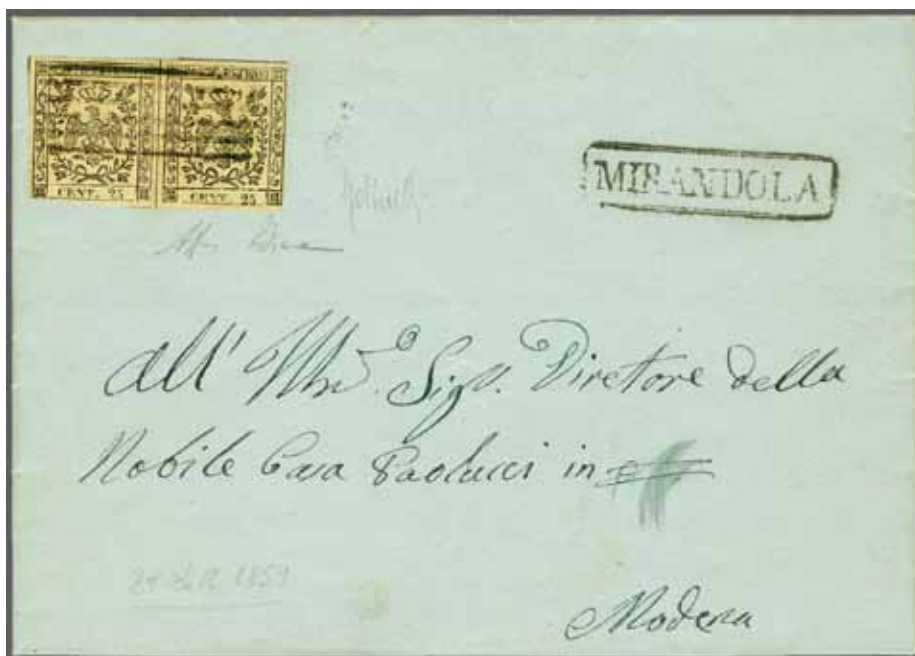 CENT. 25 CENT. 25
MIRANDOLA
all' Illmo. Sigr. Direttore della
Nobile Casa Paolucci in
Modena
1859